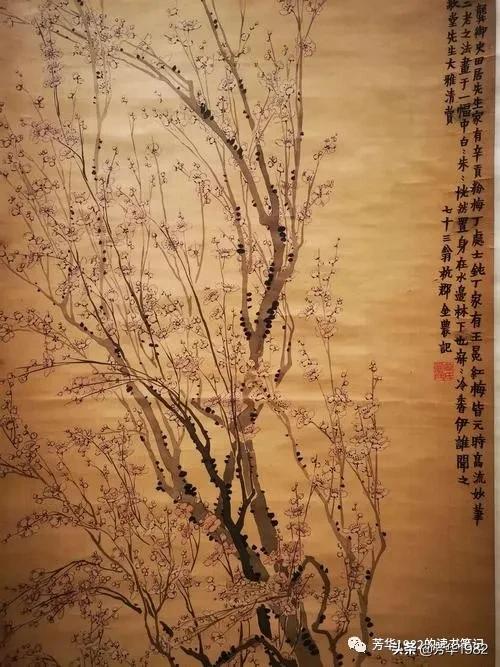 龔御史田居先生家有辛貢粉梅丁處士鈍丁家有王冕紅梅皆元時高流妙筆
二老之法畫于一幅中白〻朱〻恍然置身在水邊林下也寂〻冷香伊誰聞之
堂先生大雅清賞
七十三翁杭郡金農記
芳华1982的读书笔记
头条@芳华1982